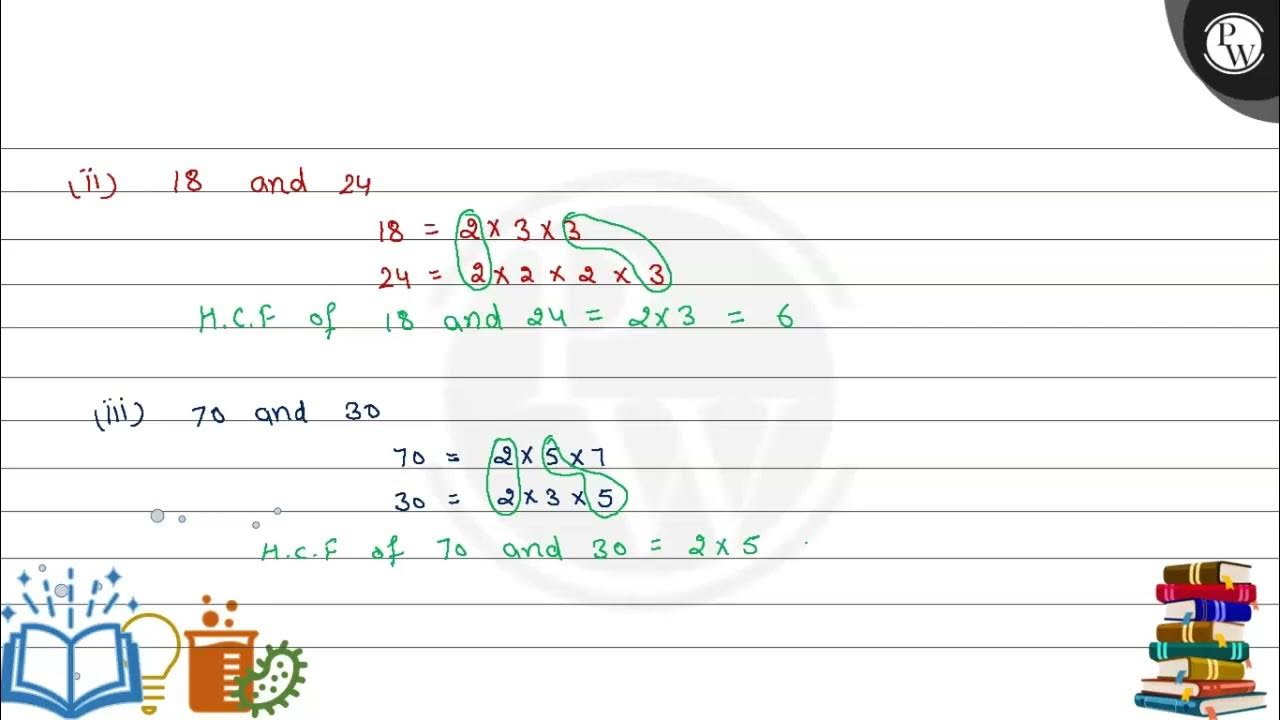 PW
(ii) 18 and 24
18 = 2 x 3 x 3
24 = 2 x 2 x 2 x 3
H.C.F of 18 and 24 = 2x3 = 6
(iii) 70 and 30
70 = 2 x 5 x 7
30 = 2 x 3 x 5
H.C.F of 70 and 30 = 2 x 5